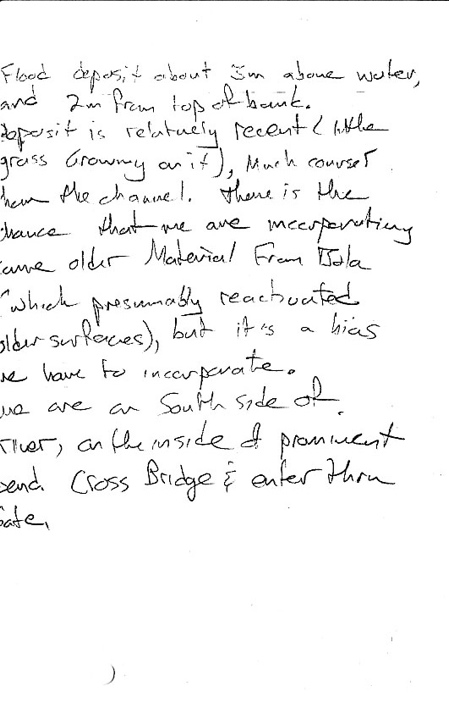 Flood deposit about 3m above water,
and 2m from top of bank.
Deposit is relatively recent (little
grass Growing on it), Much courser
than the channel. There is the
chance that we are incorporating
some older Material From
(which presumably reactivated
older surfaces), but it's a bias
we have to incorporate.
we are on South side of
river, on the inside of prominent
bend. Cross Bridge & enter thru
Gate.